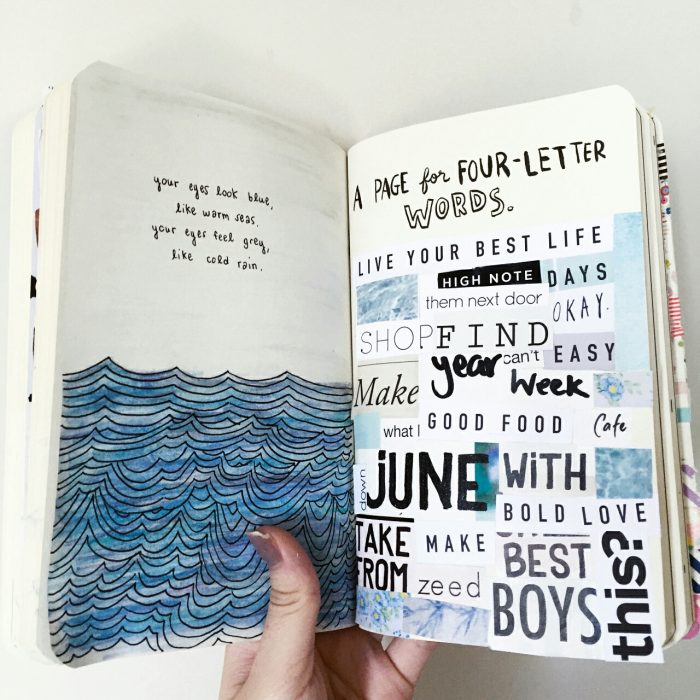 your eyes look blue,
like warm seas.
your eyes feel grey,
like cold rain.
A PAGE for FOUR-LETTER
WORDS.
LIVE YOUR BEST LIFE
HIGH NOTE
DAYS
them next door
OKAY.
SHOP
FIND
year
can't
EASY
Make
Week
what
GOOD FOOD
Cafe
down
JUNE
WiTH
BOLD LOVE
TAKE
FROM
MAKE
zeed
BEST
BOYS
this?